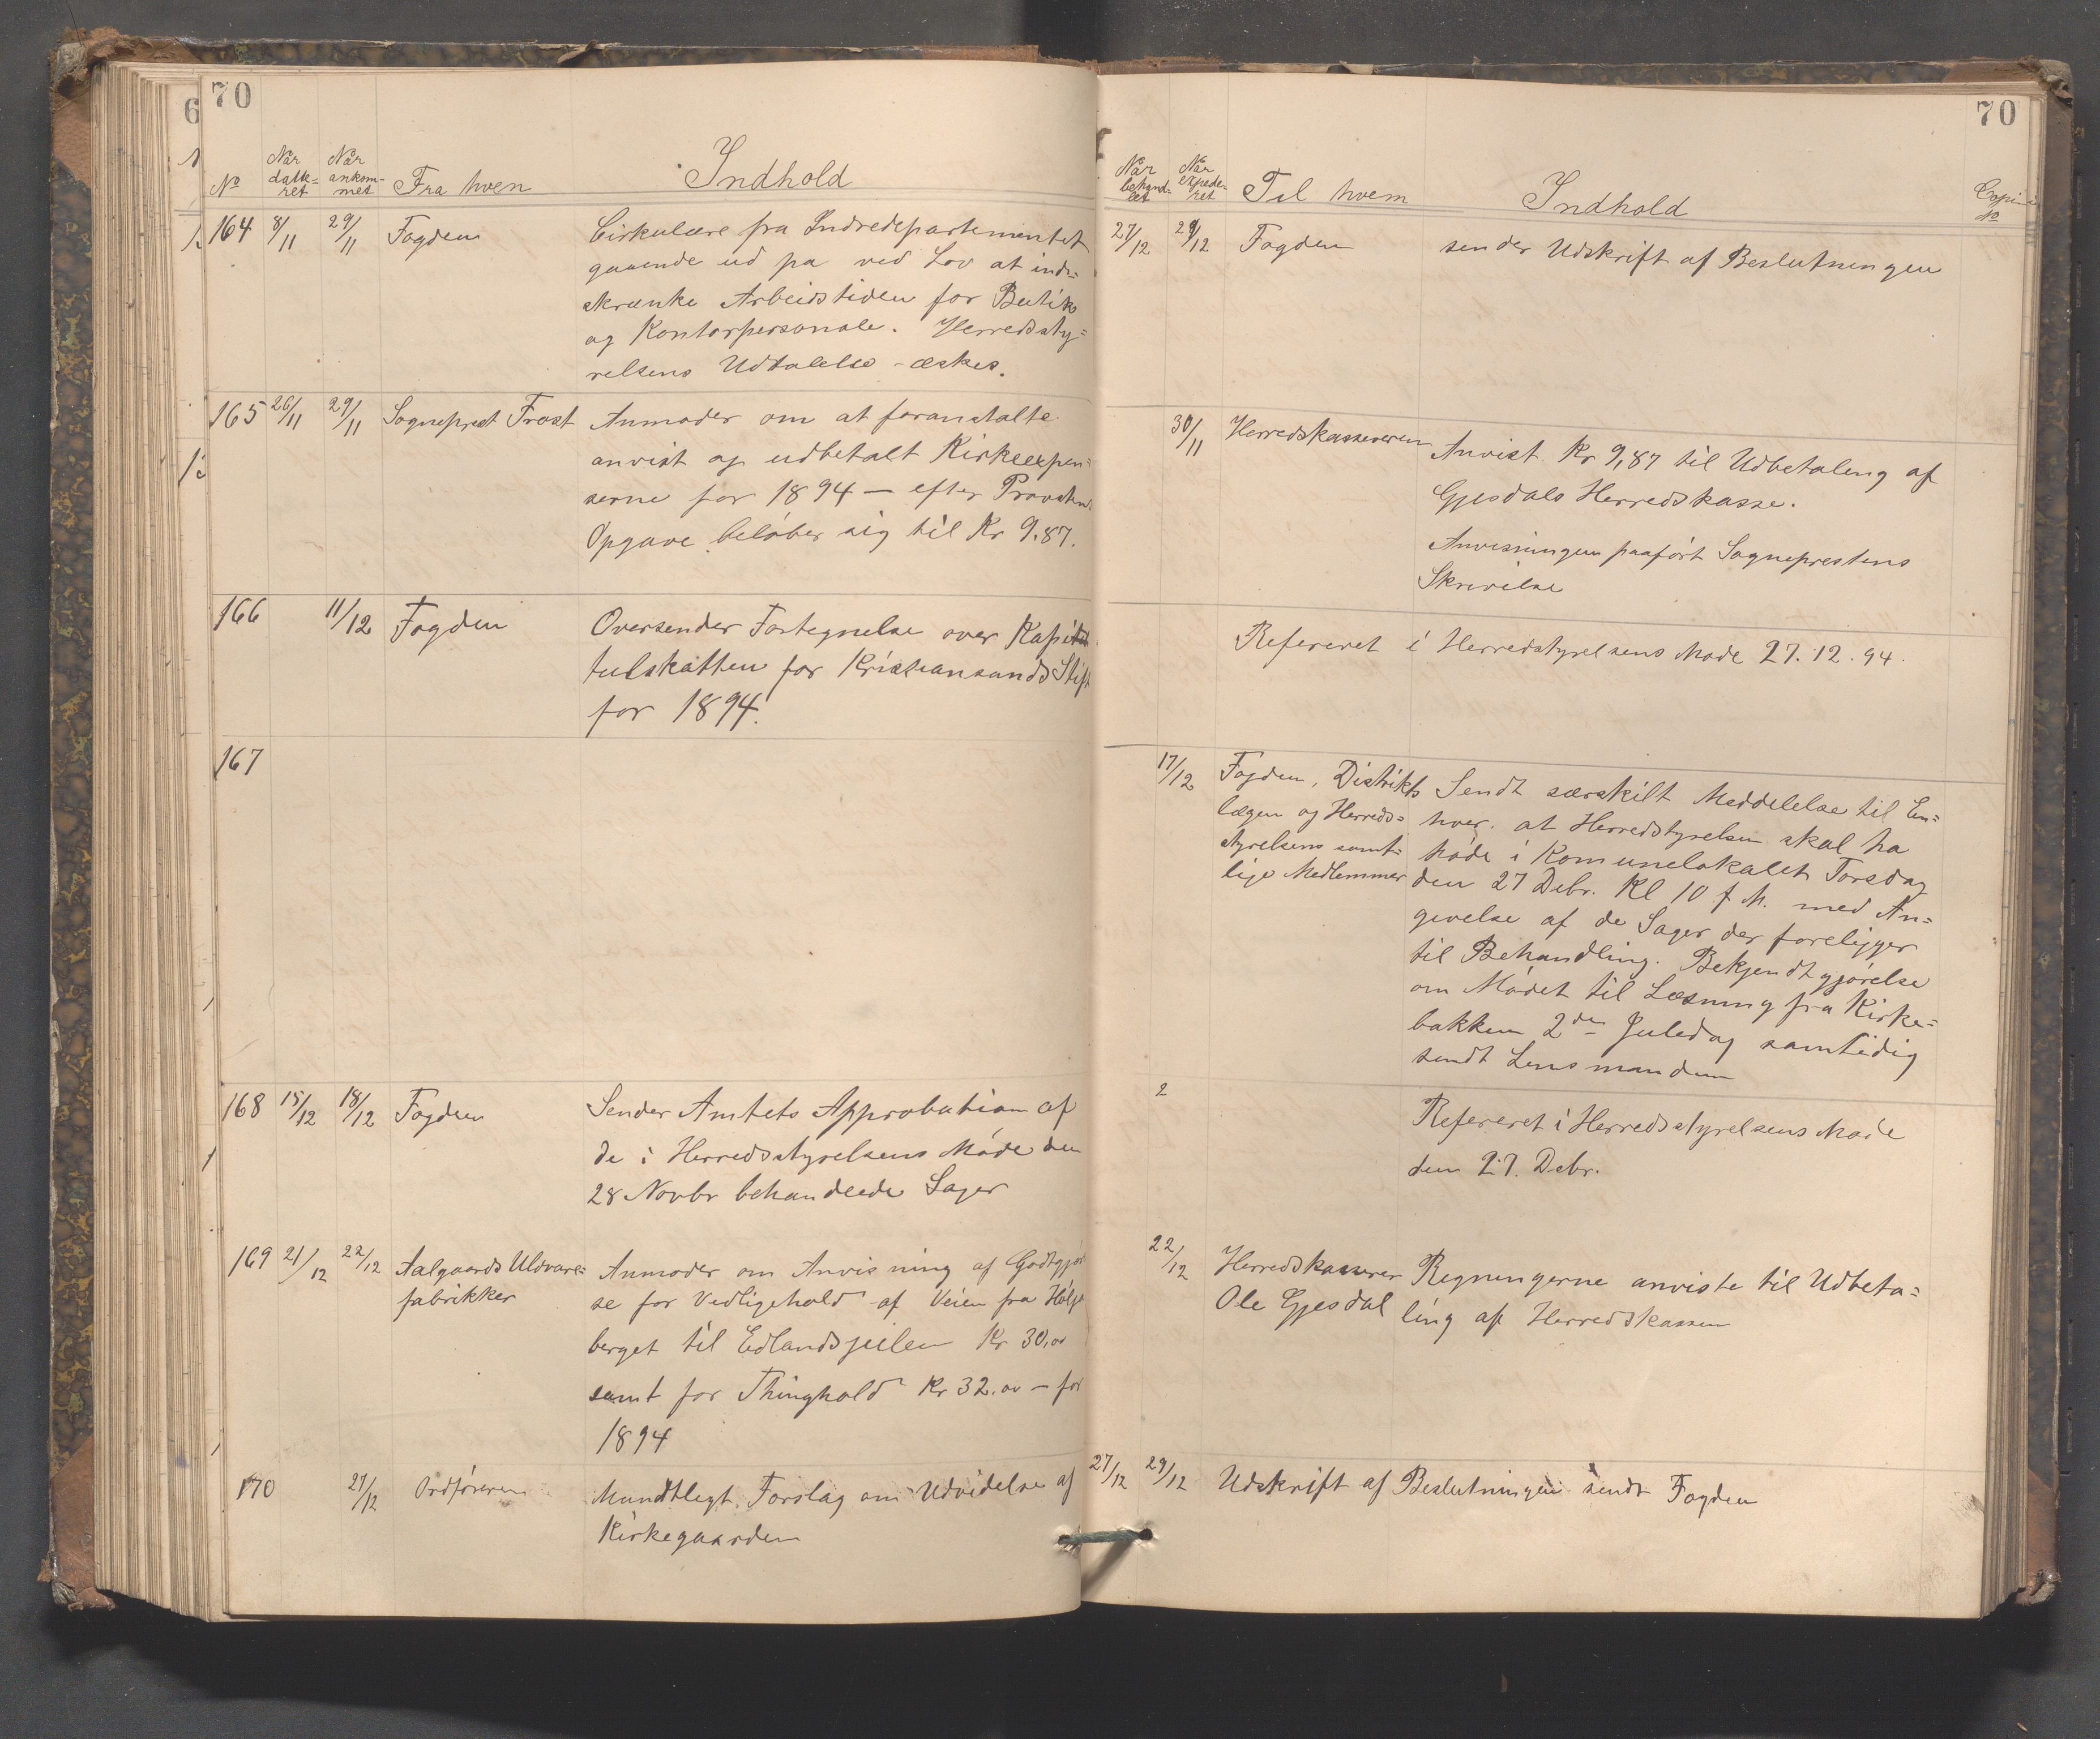 70
No
Når datteret
Når ankommet
Fra hvem
Indhold
164 8/11 29/11 Fogden
Cirkulære fra Indredepartementet
gaaende ud pa ved Lov at ind-
skrænke Arbeidstiden for Butiks
og Kontorpersonale. Herredssty=
relsens Udtalelse æskes.
165 26/11 29/11 Sogneprest Frost
Anmoder om at foranstalte
anvist og udbetalt Kirkeexpen=
serne for 1894 — efter Provstens
Opgave beløber sig til Kr 9.87.
166 11/12 Fogden
Oversender Fortegnelse over Kapi
tulskatten for Kristiansands Stift
for 1894.
167
168 15/12 18/12 Fogden
Sender Amtets Approbation af
de i Herredsstyrelsens Møde den
28 Novbr behandlede Sager
169 21/12 22/12 Aalgaards Uldvare=
fabrikker
Anmoder om Anvisning af Godtgjørel
se for Vedligehold af Veien fra
berget til Kr 30.00
samt for Thinghold Kr 32.00 — for
1894
170 27/12 Ordføreren
Mundtlegt Forslag om Udvidelse af
Kirkegaarden
70
Når behandlet
Når expederet
Til hvem
Indhold
No
27/12 29/12 Fogden
sender Udskrift af Beslutningen
30/11 Herredskassereren
Anvist Kr 9,87 til Udbetaling af
Gjesdals Herredskasse.
Anvisningen paaført Sogneprestens
Skrivelse
Refereret i Herredstyrelsens Møde 27.12.94.
17/12 Fogden, Distrikts
lægen og Herreds=
styrelsens samt=
lige Medlemmer
Sendt særskilt Meddelelse til En=
hver. at Herredstyrelsen skal ha
Møde i Komunelokalet Torsdag
den 27 Debr. Kl 10 f. M. med An=
givelse af de Sager der foreligger
til Behandling. Bekjendtgjørelse
om Mødet til Læsning fra Kirke=
bakken 2den Juledag samtidig
sendt Lensmanden
2
Refereret i Herredsstyrelsens Møde
den 27. Debr.
22/12 Herredskasserer
Ole Gjesdal
Regningerne anviste til Udbeta=
ling af Herredskassen
27/12 29/12 Udskrift af Beslutningen sendt Fogden